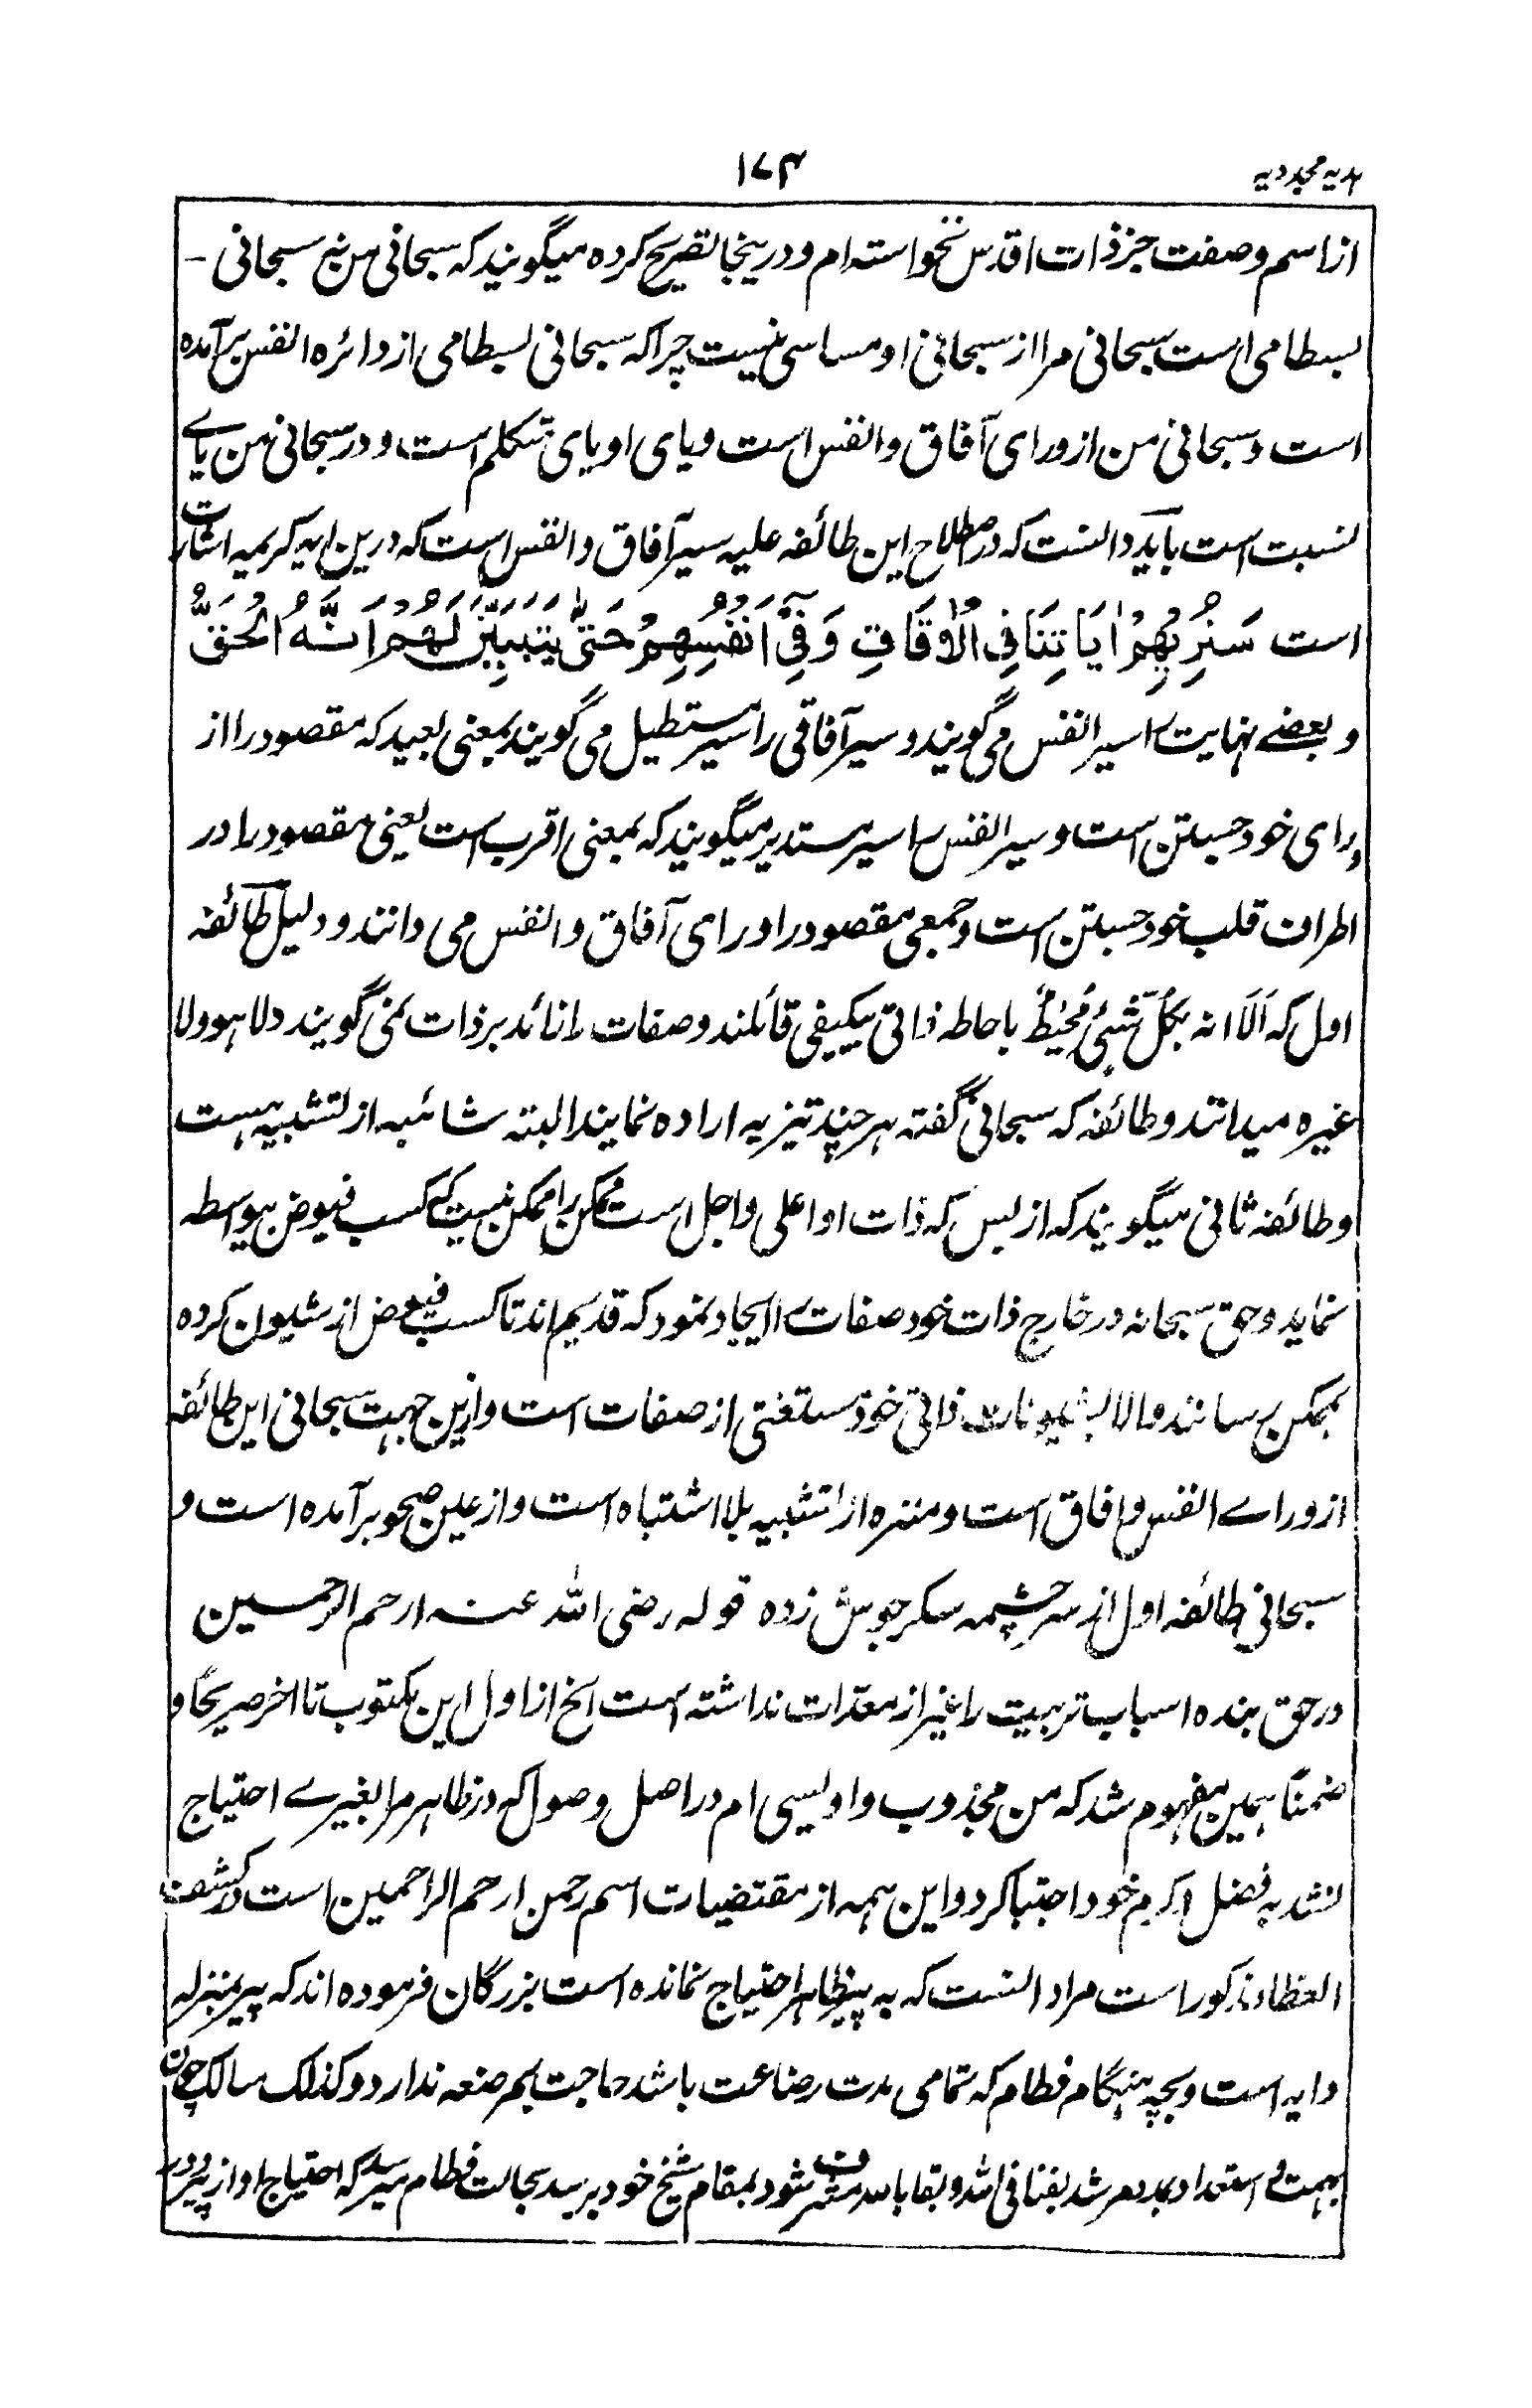 هدیه مجددیه
۱۷۴
از اسم و صفت جز ذات اقدس نخواسته ام و درینجا تصریح کرده میگویند که سبحانی من نیز سبحانی -
بسطامی است سبحانی مرا از سبحانی او مساسی نیست چرا که سبحانی بسطامی از دائره انفس برآمده
است و سبحانی من از ورای آفاق و انفس است و یای او یای متکلم است و در سبحانی من یاے
نسبت است باید دانست که در اصطلاح این طائفه علیه سیر آفاق و انفس است که درین ایه کریمه اشارت
است سَنُرِيْهِمْ اٰيَاتِنَا فِي الْاٰفَاقِ وَفِيْٓ اَنْفُسِهِمْ حَتّٰى يَتَبَيَّنَ لَهُمْ اَنَّهُ الْحَقُّ
و بعضے نهایت را سیر انفس می گویند و سیر آفاقی را سیر مستطیل می گویند بمعنی بعید که مقصود را از
ورای خود جستن است و سیر انفس را سیر مستدیر میگویند که بمعنی اقرب است یعنی مقصود را در
اطراف قلب خود جستن است و جمعی مقصود را ورای آفاق و انفس می دانند و دلیل طائفه
اول که اَلَا انه بکُلِّ شَیْءٍ مُحِیْطٌ باحاطه ذاتی بیکیفی قائلند و صفات را زائد بر ذات نمی گویند و لا هو و لا
غیره میدانند و طائفه که سبحانی گفته هر چند تنزیه اراده نمایند البته شائبه از تشبیه هست
و طائفه ثانی میگویند که از بس که ذات او اعلی و اجل است ممکن را ممکن نیست که کسب فیوض بیواسطه
نماید و حق سبحانه در خارج ذات خود صفات را ایجاد نمود که قدیم اند تا کسب فیوض از شیون کرده
بممکن برسانند و الا بشیونات ذاتی خود مستغنی از صفات است و ازین جهت سبحانی این طائفه
از وراے انفس و افاق است و منزه از تشبیه بلا اشتباه است و از عین صحو برآمده است و
سبحانی طائفه اول از سرچشمه سکر جوش زده قوله رضی الله عنه ارحم الرحمین
در حق بنده اسباب تربیت را غیر از معدات نداشته است الخ از اول این مکتوب تا اخر صریحًا و
ضمنًا همین مفهوم شد که من مجذوب و اویسی ام در اصل وصول که در ظاهر مرا بغیرے احتیاج
نشد به فضل و کرم خود اجتبا کرد و این همه از مقتضیات اسم رحمن ارحم الراحمین است در کشف
الغطاء مذکور است مراد انست که به پیر ظاهر احتیاج نمانده است بزرگان فرموده اند که پیر بمنزله
دایه است و بچه هنگام فطام که تمامی مدت رضاعت باشد حاجت بمرضعه ندارد و کذلک سالک چون
بهمت و استعداد بمدد مرشد بفنا فی الله و بقا بالله مشرف شود بمقام شیخ خود برسد بحالت فطام میرسد که احتیاج او از پیر و در